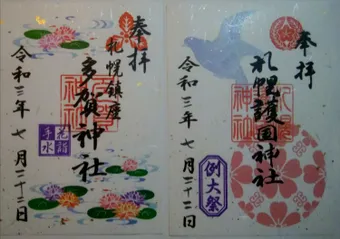 奉拝
札幌鎮座
多賀神社
令和三年七月二十二日
花詣
手水
奉拝
札幌護国神社
令和三年七月二十二日
例大祭